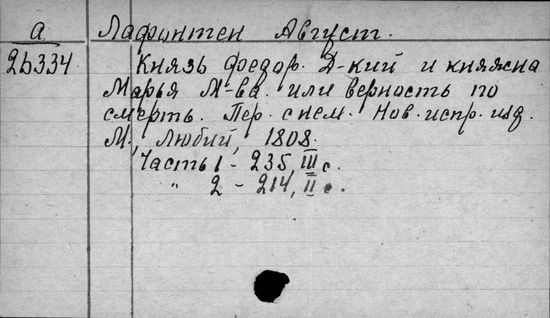 а Лафинтен Август.
2Ь334 Князь Федор. Д-кий и княжна
Марья М-ва или верность по
смерть. Пер. с нем. Нов. испр. изд.
М., Любий, 1808.
Часть 1 - 235, III с.
" 2 - 214, II с.